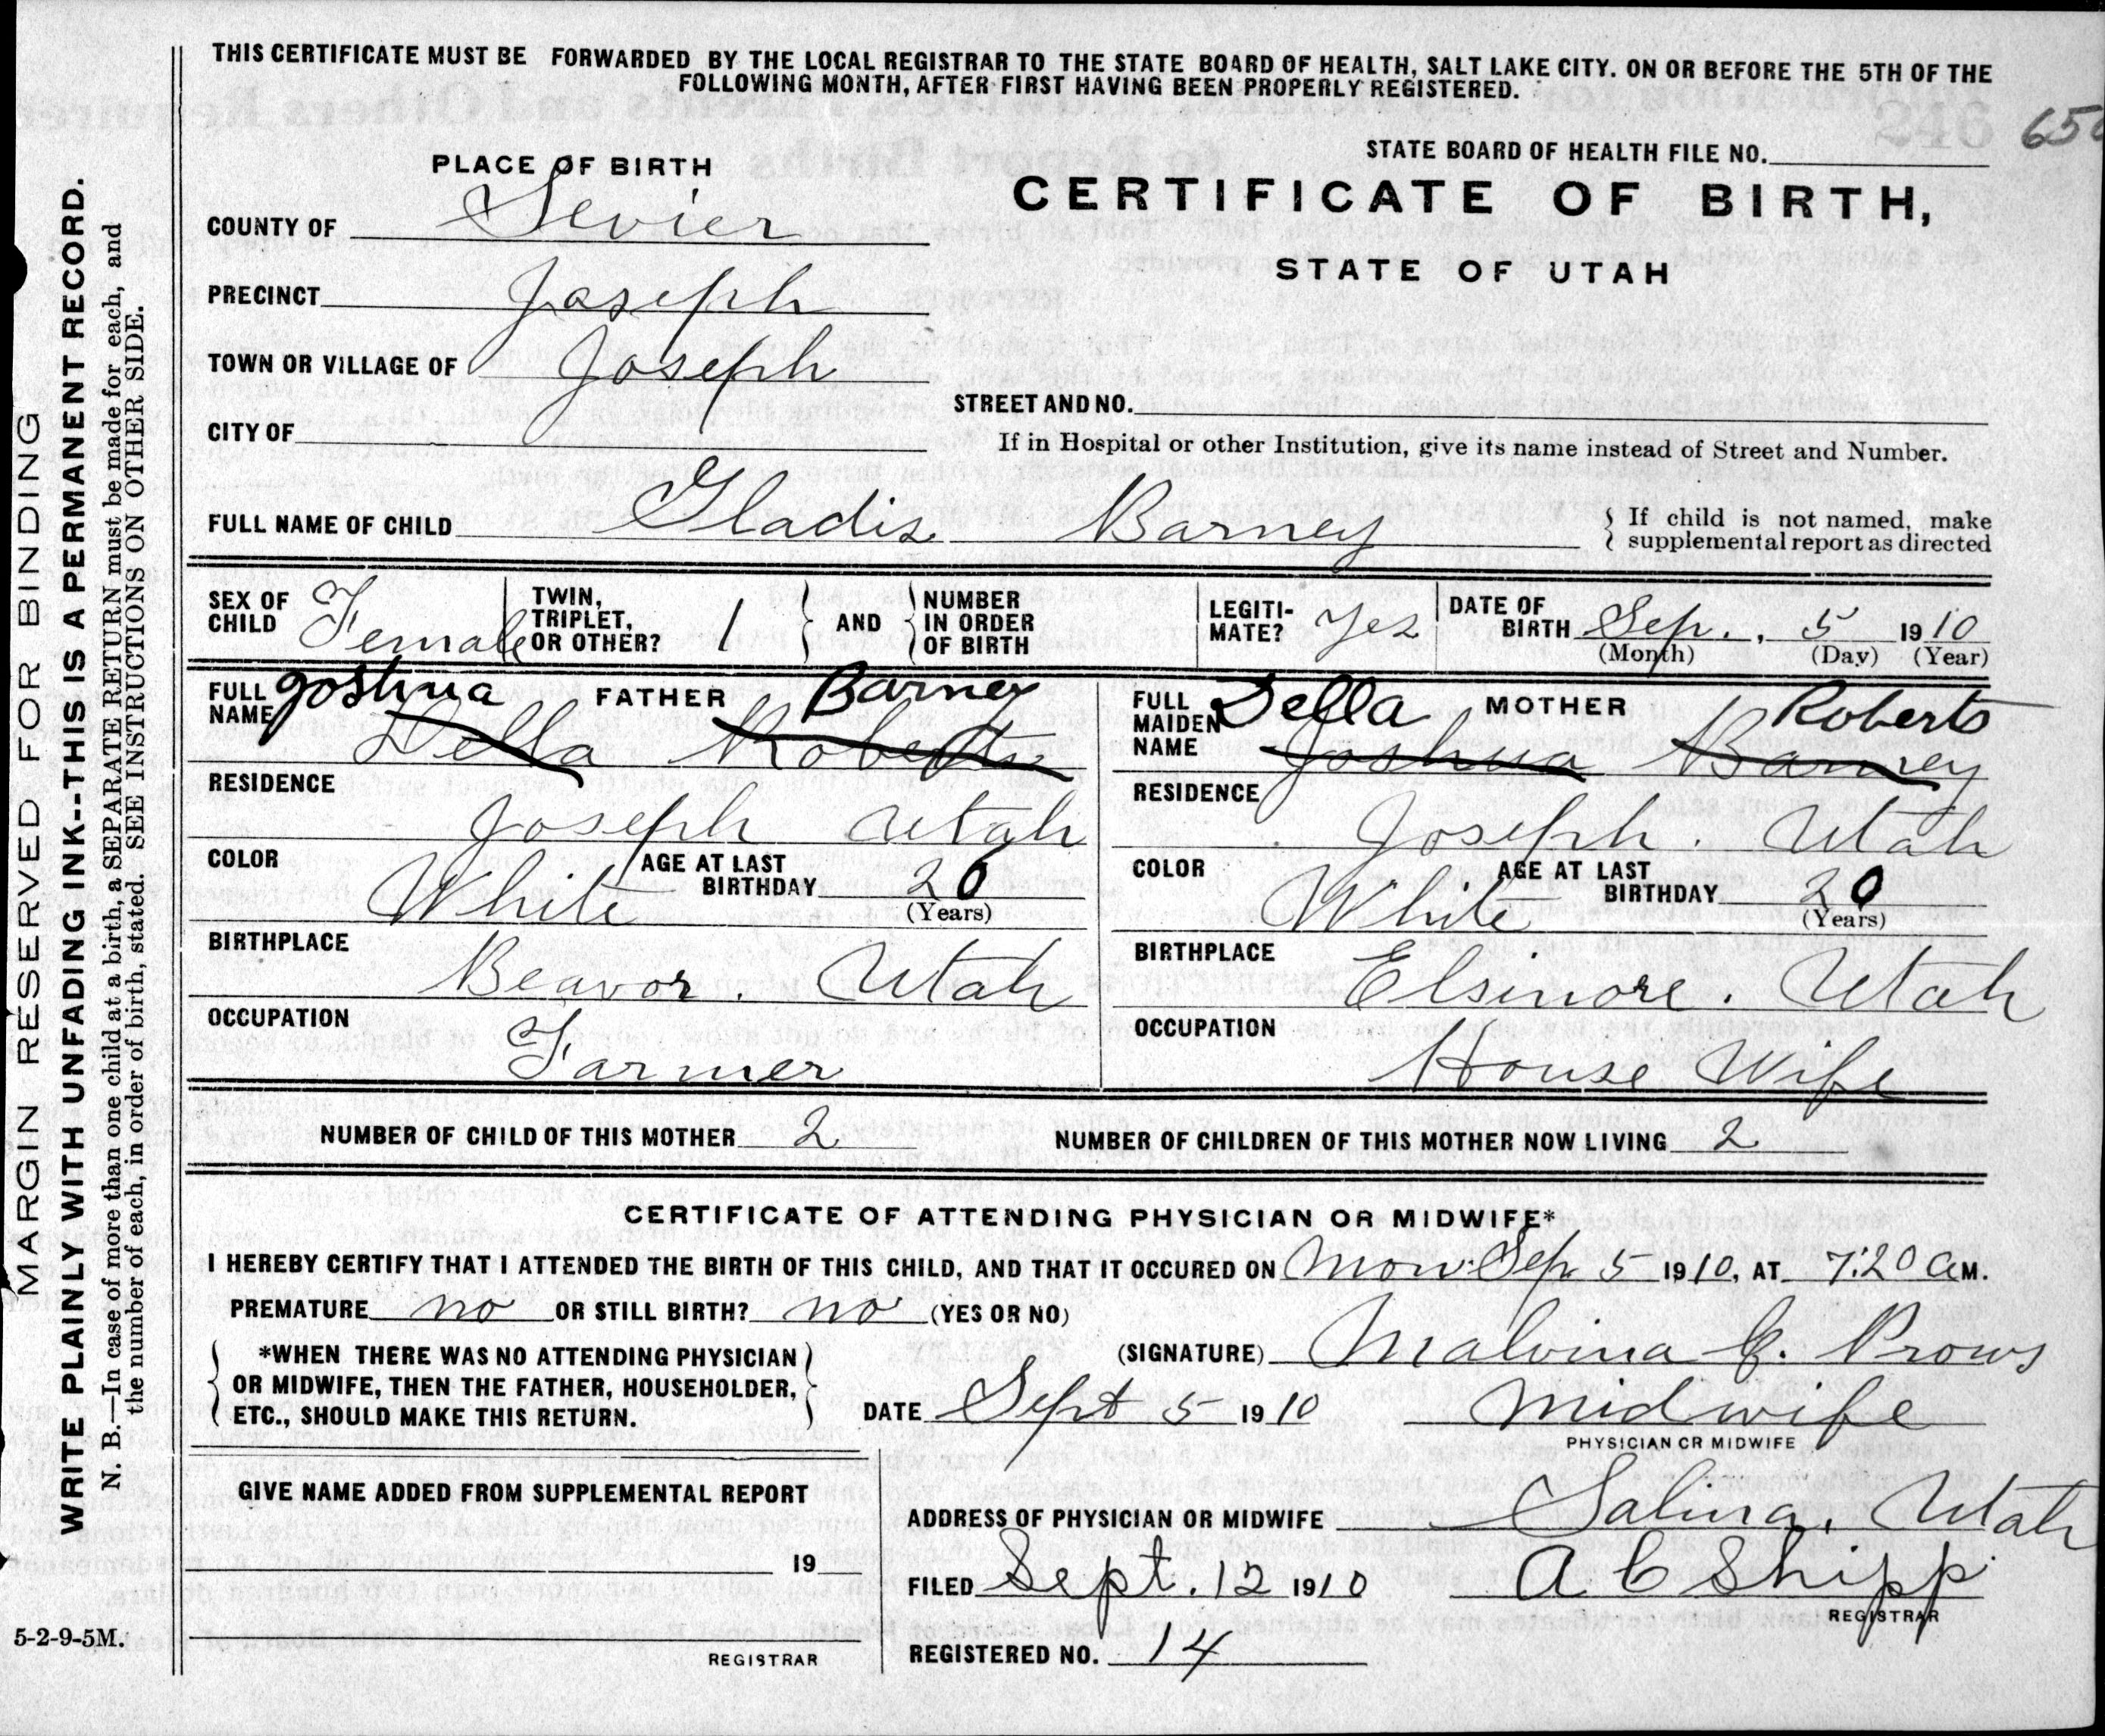 THIS CERTIFICATE MUST BE FORWARDED BY THE LOCAL REGISTRAR TO THE STATE BOARD OF HEALTH, SALT LAKE CITY. ON OR BEFORE THE 5TH OF THE
FOLLOWING MONTH, AFTER FIRST HAVING BEEN PROPERLY REGISTERED.
246
STATE BOARD OF HEALTH FILE NO.
CERTIFICATE OF BIRTH,
STATE OF UTAH
PLACE OF BIRTH
COUNTY OF Sevier
PRECINCT Joseph
TOWN OR VILLAGE OF Joseph
STREET AND NO.
CITY OF
If in Hospital or other Institution, give its name instead of Street and Number.
FULL NAME OF CHILD Gladis Barney
If child is not named, make
supplemental report as directed
SEX OF CHILD Female
TWIN, TRIPLET, OR OTHER? 1 AND NUMBER IN ORDER OF BIRTH
LEGITI-MATE? Yes
DATE OF BIRTH Sep., 5 1910
(Month) (Day) (Year)
FULL NAME FATHER Joshua Barney
Della Roberts
RESIDENCE
Joseph Utah
COLOR White AGE AT LAST BIRTHDAY 20
(Years)
BIRTHPLACE
Beavor. Utah
OCCUPATION
Farmer
FULL MAIDEN NAME MOTHER Della Roberts
Joshua Barney
RESIDENCE
Joseph. Utah
COLOR White AGE AT LAST BIRTHDAY 20
(Years)
BIRTHPLACE
Elsinore. Utah
OCCUPATION
House Wife
NUMBER OF CHILD OF THIS MOTHER 2 NUMBER OF CHILDREN OF THIS MOTHER NOW LIVING 2
CERTIFICATE OF ATTENDING PHYSICIAN OR MIDWIFE*
I HEREBY CERTIFY THAT I ATTENDED THE BIRTH OF THIS CHILD, AND THAT IT OCCURED ON Mon. Sep 5 1910, AT 7:20 A M.
PREMATURE no OR STILL BIRTH? no (YES OR NO)
*WHEN THERE WAS NO ATTENDING PHYSICIAN
OR MIDWIFE, THEN THE FATHER, HOUSEHOLDER,
ETC., SHOULD MAKE THIS RETURN.
(SIGNATURE) Malvina C. Prows
DATE Sept 5 1910 Midwife
PHYSICIAN OR MIDWIFE
GIVE NAME ADDED FROM SUPPLEMENTAL REPORT
19
REGISTRAR
ADDRESS OF PHYSICIAN OR MIDWIFE Salina, Utah
FILED Sept. 12 1910 A C Shipp
REGISTRAR
REGISTERED NO. 14
MARGIN RESERVED FOR BINDING
WRITE PLAINLY WITH UNFADING INK--THIS IS A PERMANENT RECORD.
N. B.—In case of more than one child at a birth, a SEPARATE RETURN must be made for each, and
the number of each, in order of birth, stated. SEE INSTRUCTIONS ON OTHER SIDE.
5-2-9-5M.